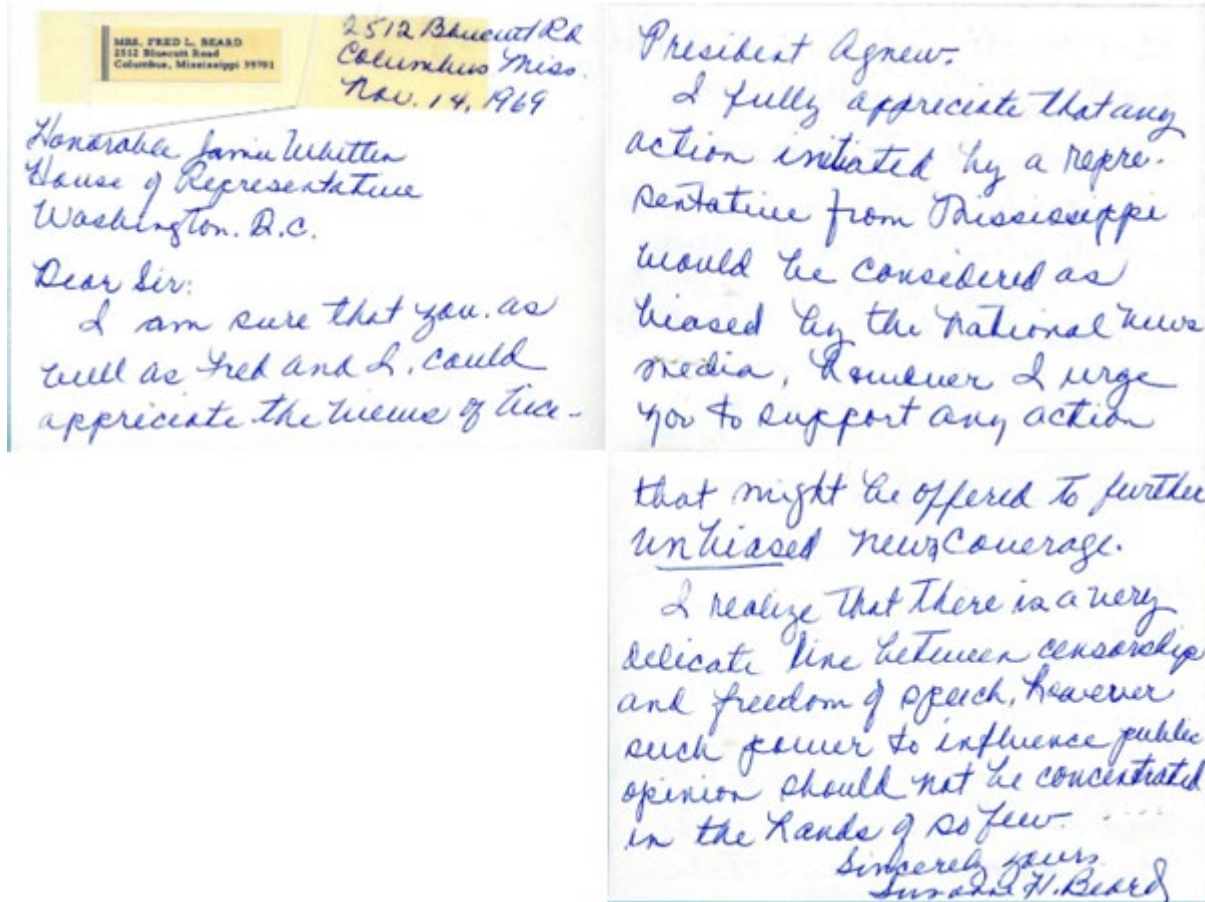 MRS. FRED L. BEARD
2512 Bluecutt Road
Columbus, Mississippi 39701
2512 Bluecutt Rd
Columbus Miss.
Nov. 14, 1969
Honorable Jamie Whitten
House of Representative
Washington. D.C.
Dear Sir:
I am sure that you. as
well as Fred and I. could
appreciate the views of Vice-
President Agnew.
I fully appreciate that any
action initiated by a repre-
sentative from Mississippi
would be considered as
biased by the national news
media, however I urge
you to support any action
that might be offered to further
unbiased news coverage.
I realize that there is a very
delicate line between censorship
and freedom of speech, however
such power to influence public
opinion should not be concentrated
in the hands of so few.
Sincerely yours
Suzanne H. Beard